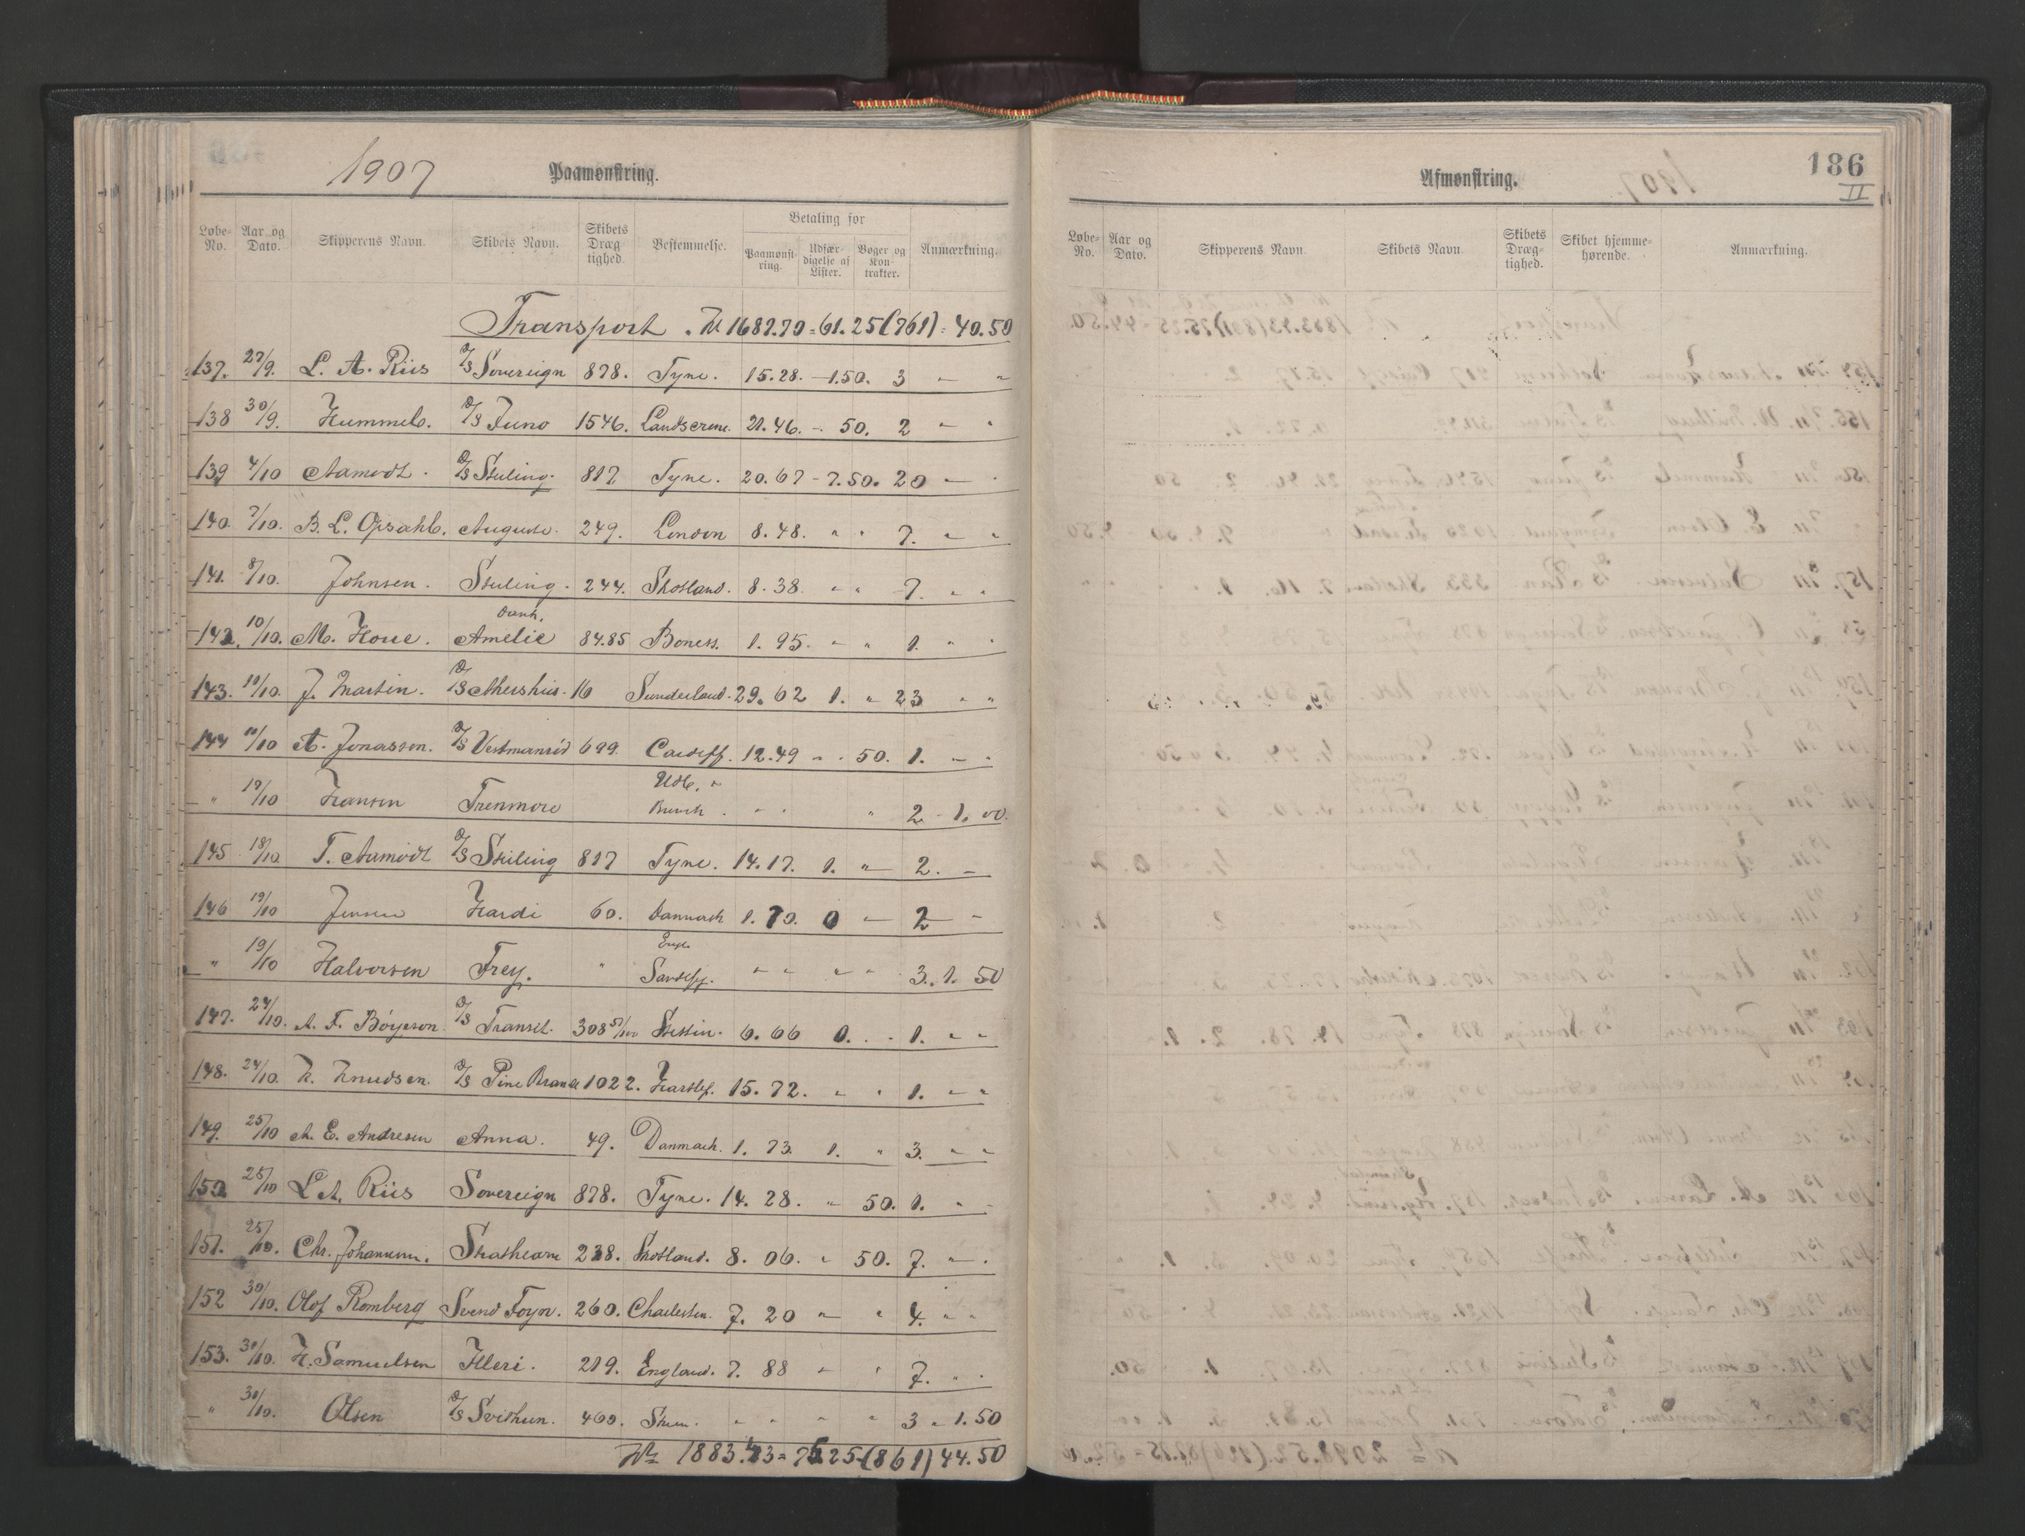 1907 Paamønstring.
Løbe-No. Aar og Dato. Skipperens Navn. Skibets Navn. Skibets Dræg tighed. Bestemmelse. Betaling for Paamønstring. Udfærdigelse af Lister. Bøger og Kontrakter. Anmærkning.
Transport . Kr 1689.70 = 61.25 (761) = 40.50
137. 27/9. L. A. Riis D/S Sovereign 878. Tyne. 15.28. - 1.50. 3 " "
138 30/9. Hummels. D/S Juno 1546. Landscrone. 21.46. - 50. 2 " "
139 4/10 Aamodt. D/S Sterling. 817 Tyne. 20.67 - 7.50. 20 " "
140. 7/10. B. L. Opsahl. Auguste. 249. London 8.48. " " 7. " "
141. 8/10. Johnsen. Sterling. 244. Skotland. 8.38. " " 7. " "
142. 10/10. M. Houe. Dansk. Amelie 84.85 Boness. 1.95. " " 1. " "
143. 10/10. J. Martin. D/S Akershus. 16 Sunderland. 29.62 1. " 23 " "
144 11/10 A. Jonassen. D/S Vestmanrød 699. Cardiff. 12.49 " . 50. 1. " "
" 12/10 Hansen Trenmore " " " 2 - 1.00.
145 18/10 T. Aamodt D/S Sterling 817 Tyne. 14.17. 1. " 2. -
146 19/10 Jensen Hardi 60. Danmark 1.70. 0 - 2 -
" 19/10 Halvorsen Frey. " Sandefj. " " " " 3. 1.50
147. 24/10. A. F. Börjeson. D/S Transit. 308 57/100 Stettin. 6.66 0. . 1. " "
148. 24/10. K. Knudsen. D/S Pine Branch 1022. Hartlep. 15.72. " " 1. " "
149. 25/10 A. E. Andresen Anna. 49. Danmark. 1.73. 1. " 3. " "
150 25/10 L. A. Riis Sovereign 878. Tyne. 14.28. " 50. 1. " "
151. 25/10. Chr. Johannesen. Strathearn 238. Skotland. 8.06. " 50. 7. " "
152 30/10. Olof Romberg Svend Foyn. 260. Charleston. 7.20 " " 4. " "
153. 30/10. H. Samuelsen Hleri. 219. England. 7.88 " " 7. " "
" 30/10. Olsen D/S Svithun. 460. Skien. " " " " 3 " 1.50
Kr 1883.43 = 75.25 (861) 44.50
Afmønstring. 186
II
Løbe-No. Aar og Dato. Skipperens Navn. Skibets Navn. Skibets Dræg-tighed. Skibet hjemme-hørende. Anmærkning.